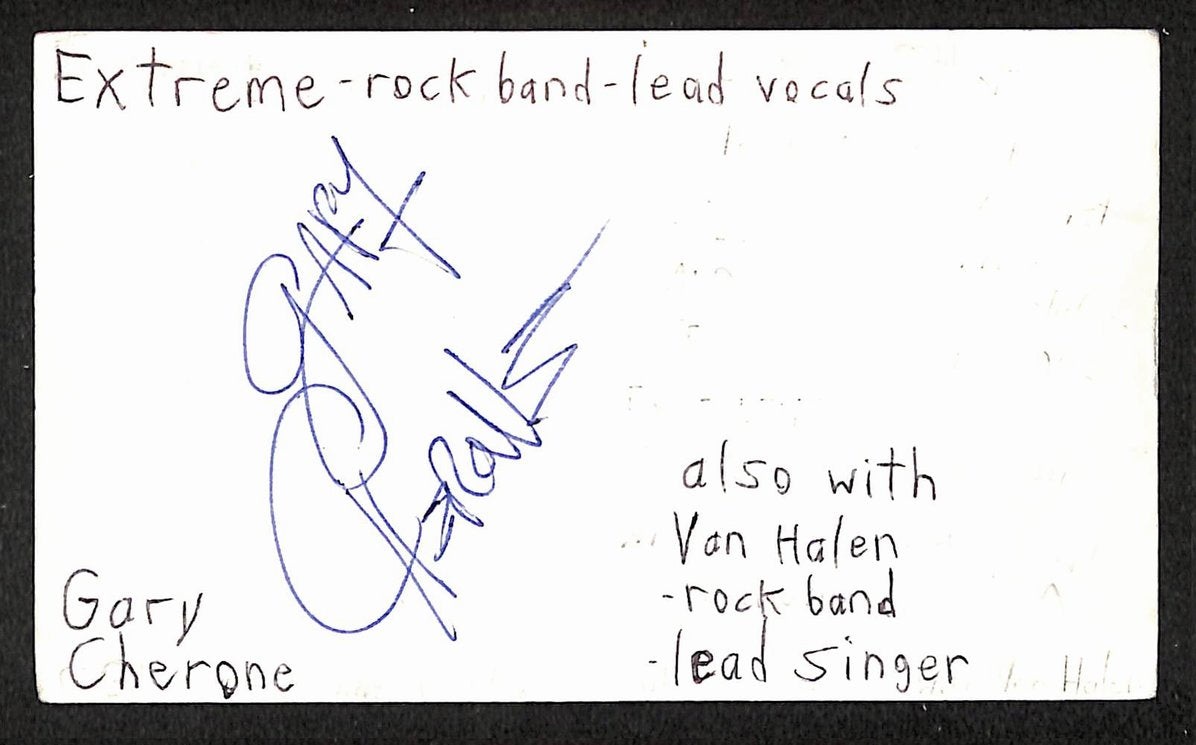 Extreme-rock band-lead vocals
Gary
Cherone
also with
Van Halen
-rock band
-lead singer
Gary
Cherone